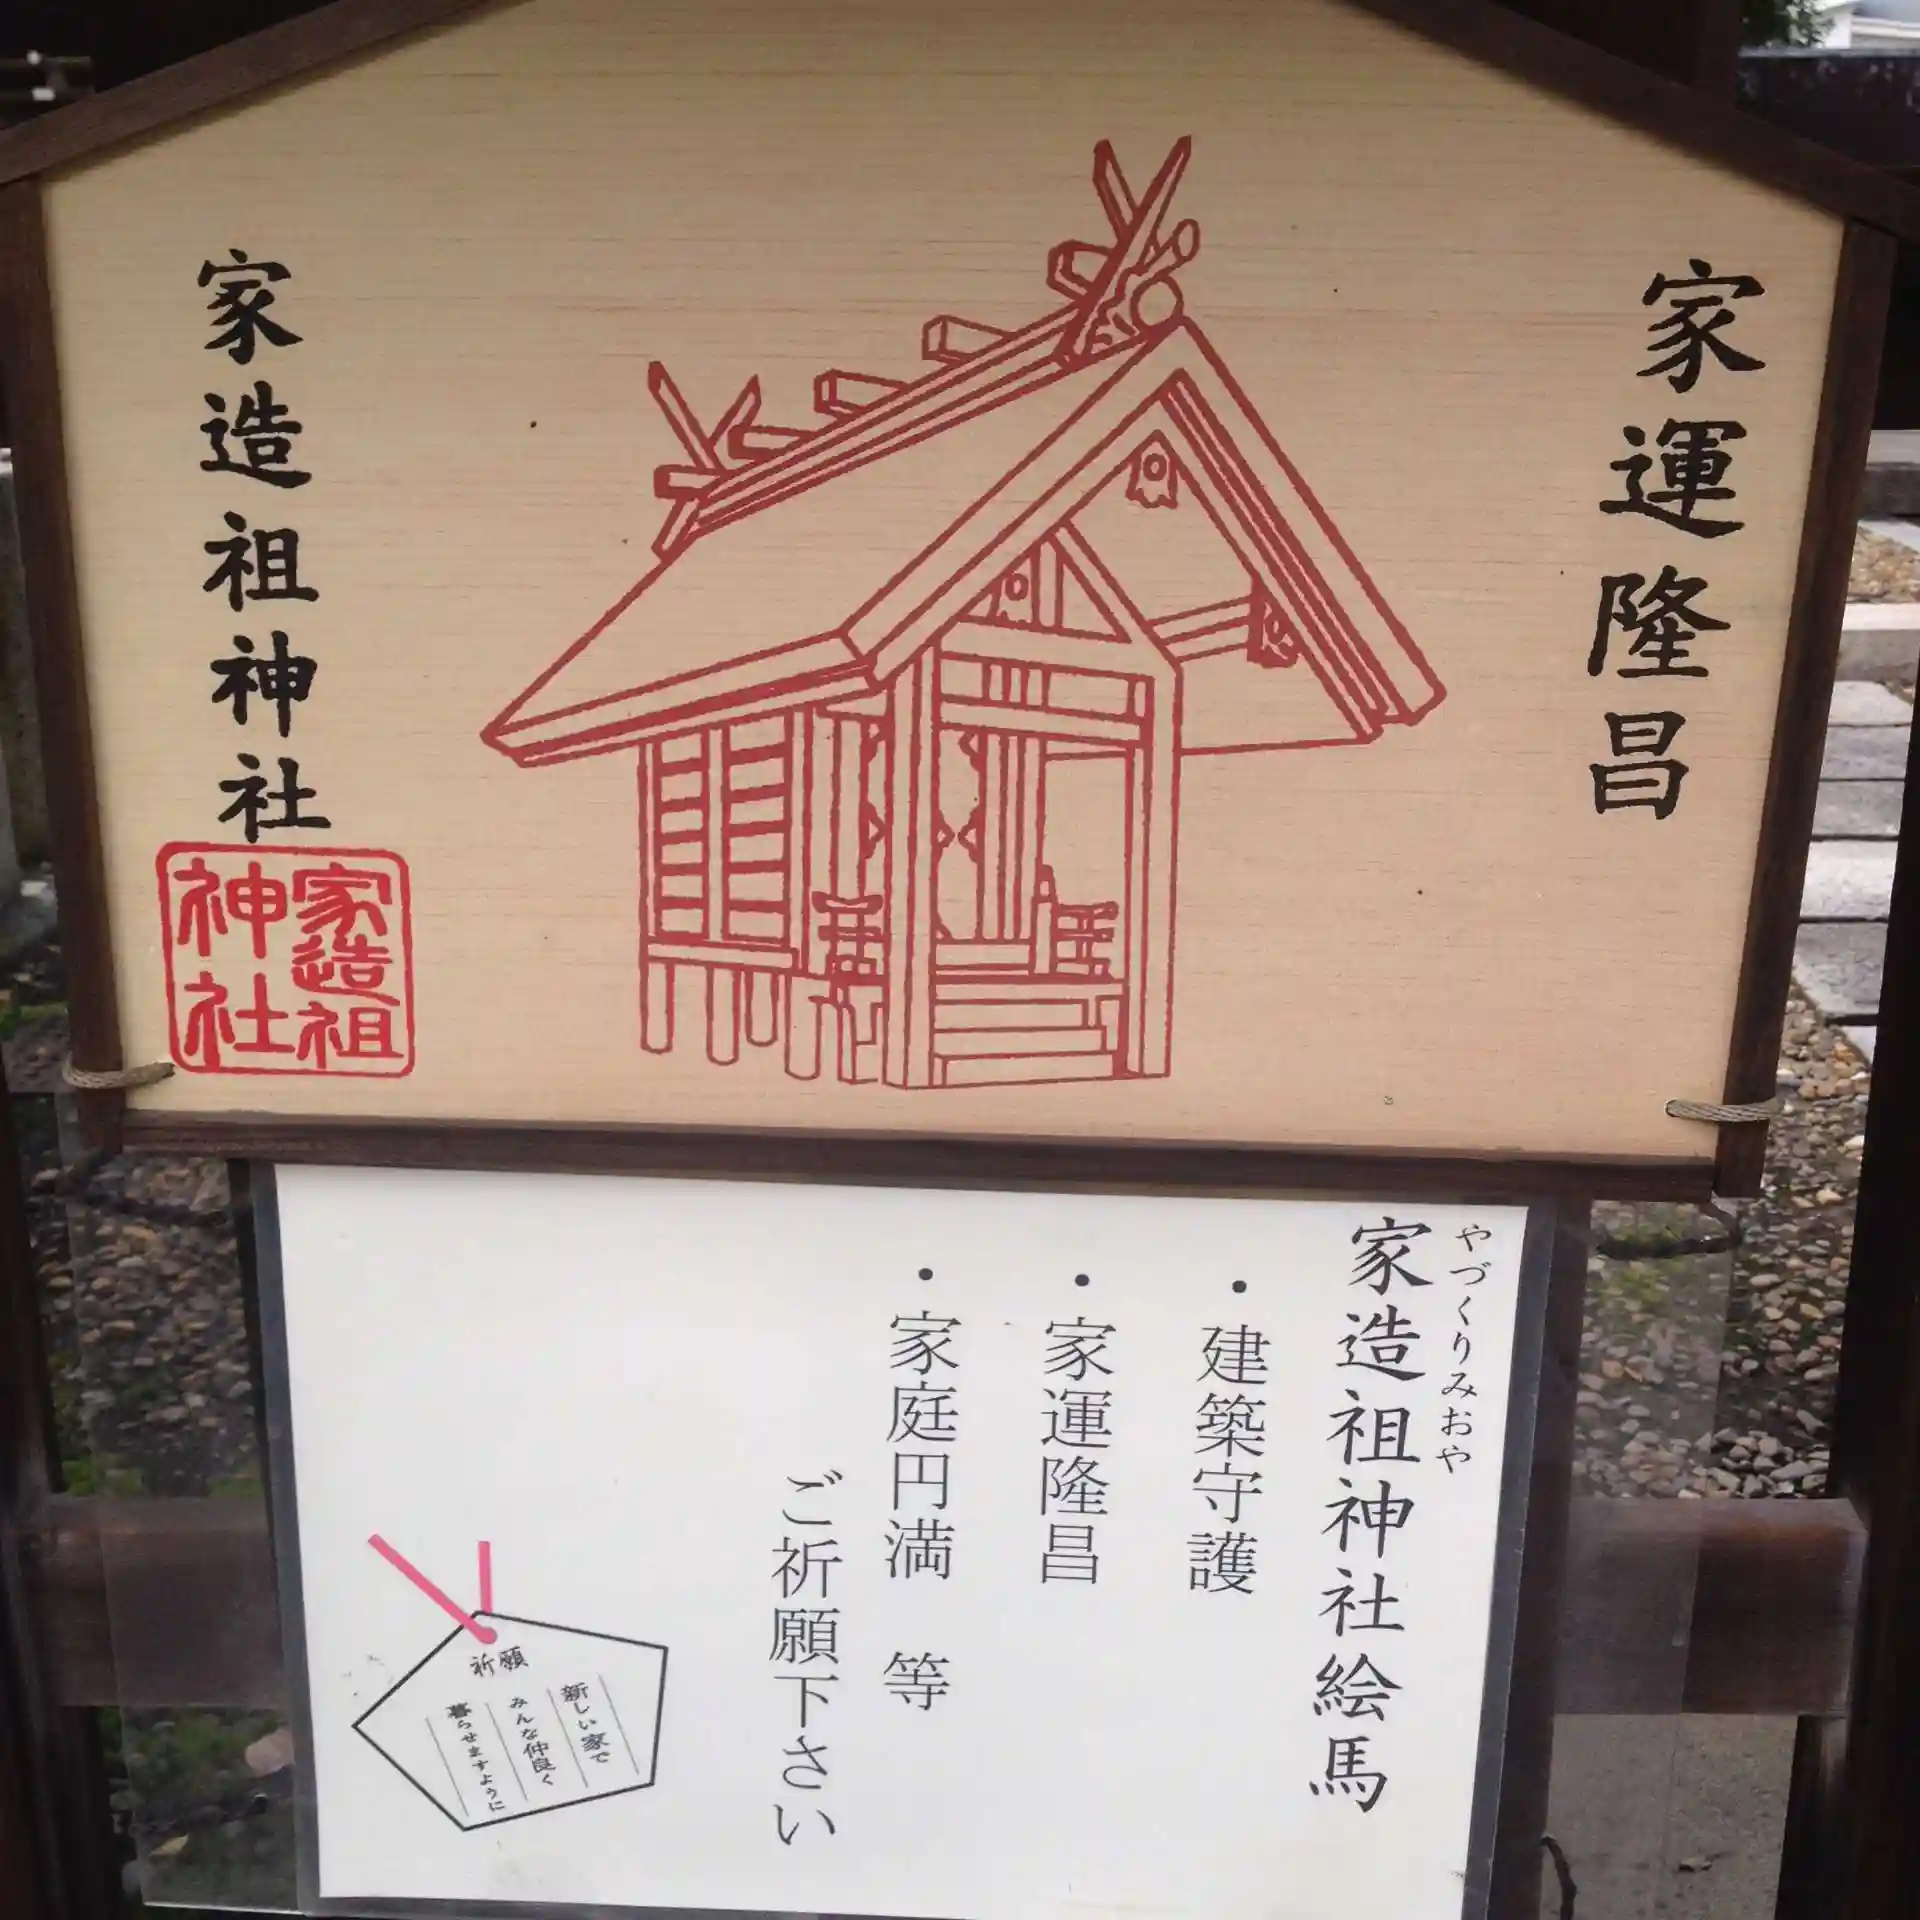 家運隆昌
家造祖神社
家造祖
神社
やづくりみおや
家造祖神社絵馬
・建築守護
・家運隆昌
・家庭円満　等
ご祈願下さい
祈願
新しい家で
みんな仲良く
暮らせますように